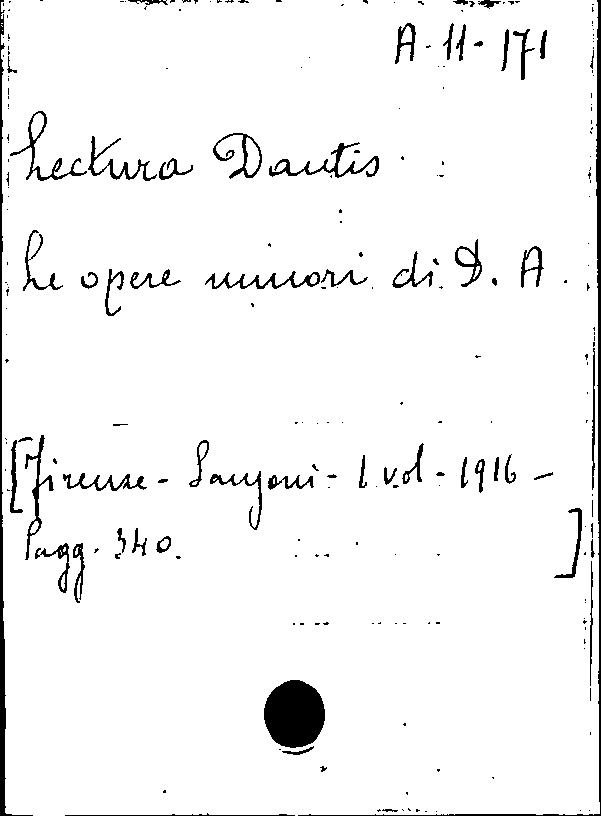 A-11-171
Lectura Dantis
Le opere minori di D. A.
[Firenze - Sansoni - 1 vol - 1916 -
Pagg. 340.]